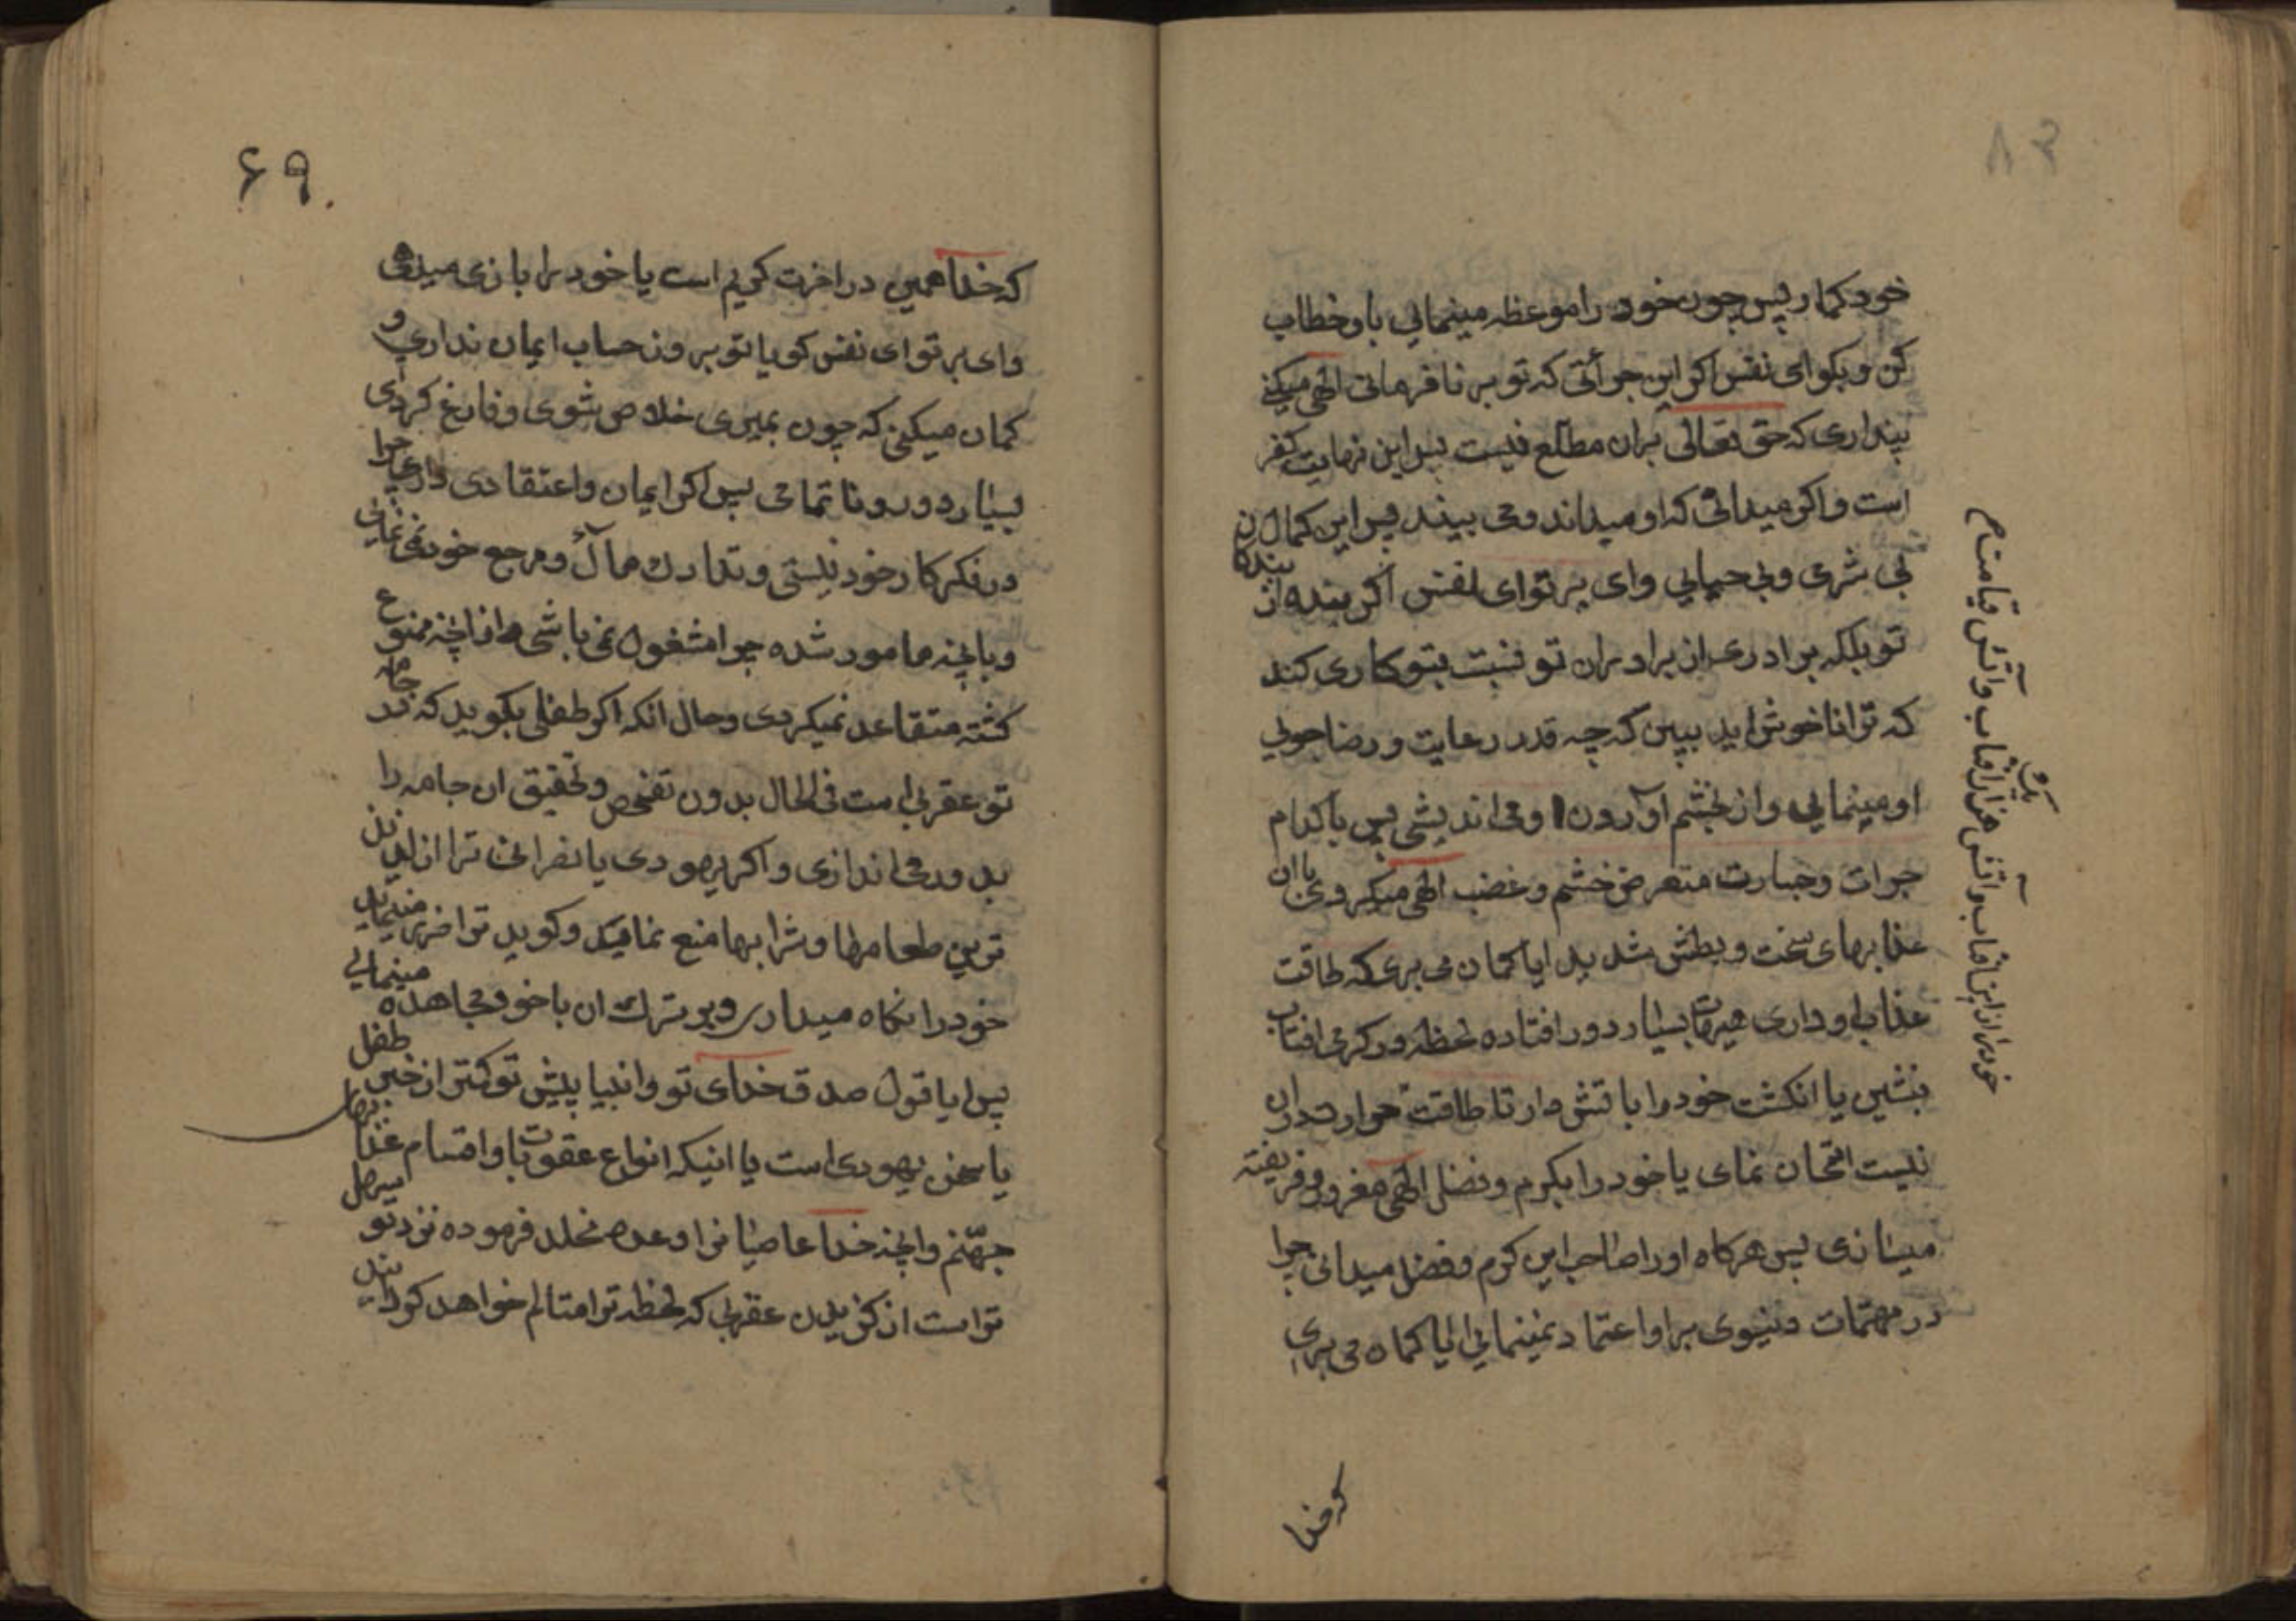 خود کمار پس چون خود را موعظه مینمائی باو خطاب
کن و بکو ای نفس اکر این جرأتی که تو بر نافرمانی الهی میکنی
پنداری که حق تعالی بران مطلع نیست پس این نهایت کفر
است و اکر میدانی که او میداند و می بیند پس این کمال
بی شرمی و بی حیایی وای بر تو ای نفس اکر بنده از بندکان
تو بلکه برادری از برادران تو نسبت بتو کاری کند
که ترا ناخوش اید ببین که چه قدر رعایت و رضاجویی
او مینمایی و از خشم او می اندیشی پس با کدام
جرات و جسارت متعرض خشم و غضب الهی میکردی با ان
عذابهای سخت و بطش شدید ایا کمان می بری که طاقت
عذاب او داری هیهات بسیار دور افتاده لحظه در کرمی افتاب
بنشین یا انکشت خود را باتش دار تا طاقت حرارت دران
نیست امتحان نمای یا خود را بکرم و فضل الهی مغرور و فریفته
میسازی پس هرکاه او را صاحب این کرم و فضل میدانی چرا
در مهمات دنیوی بر او اعتماد نمینمائی ایا کمان می بری
که خدا
خود را از این افتاب و اتش هزار افتاب و اتش قیامت
۶۹
که خدا همین در اخرت کریم است یا خود را بازی میدهی
وای بر تو ای نفس کویا تو بروز حساب ایمان نداری و
کمان میکنی که چون بمیری خلاص شوی و فارغ کردی
بسیار دور و ناتمامی پس اکر ایمان و اعتقادی داری چرا
در فکر کار خود نیستی و تدارک مآل و مرجع خود نمی نمائی
و بانچه مامور شده چرا مشغول نمی باشی و از انچه ممنوع
کشته متقاعد نمیکردی و حال انکه اکر طفلی بکوید که در جامه
تو عقربی است فی الحال بدون تفحص و تحقیق ان جامه را
بدور می اندازی و اکر یهودی یا نصرانی ترا از لذیذ
ترین طعامها و شرابها منع نماید و کوید ترا ضرر مینماید
خود را نکاه میداری و بر ترک ان با خود مجاهده مینمائی
پس ایا قول صدق خدای تو و انبیا پیش تو کمتر از خبر طفل
یا سخن یهودی است یا اینکه انواع عقوبات و اقسام عذابهای
جهنم و انچه خدا عاصیانرا وعده مخلد فرموده نزد تو اسهل
تر است از کزیدن عقربی که لحظه ترا متالم خواهد کردانید